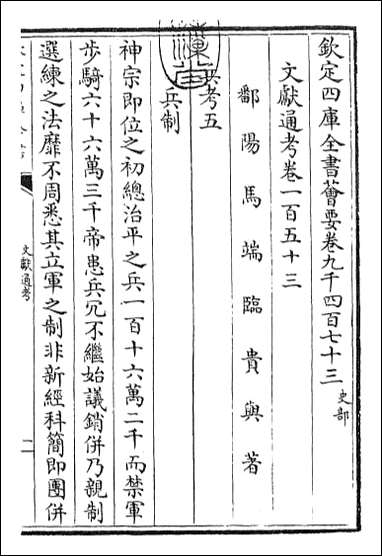 欽定四庫全書薈要卷九千四百七十三 史部
文獻通考卷一百五十三
鄱陽馬端臨貴與著
兵考五
兵制
神宗即位之初總治平之兵一百十六萬二千而禁軍
步騎六十六萬三千帝患兵冗不繼始議銷併乃親制
選練之法靡不周悉其立軍之制非新經科簡即團併
文獻通考